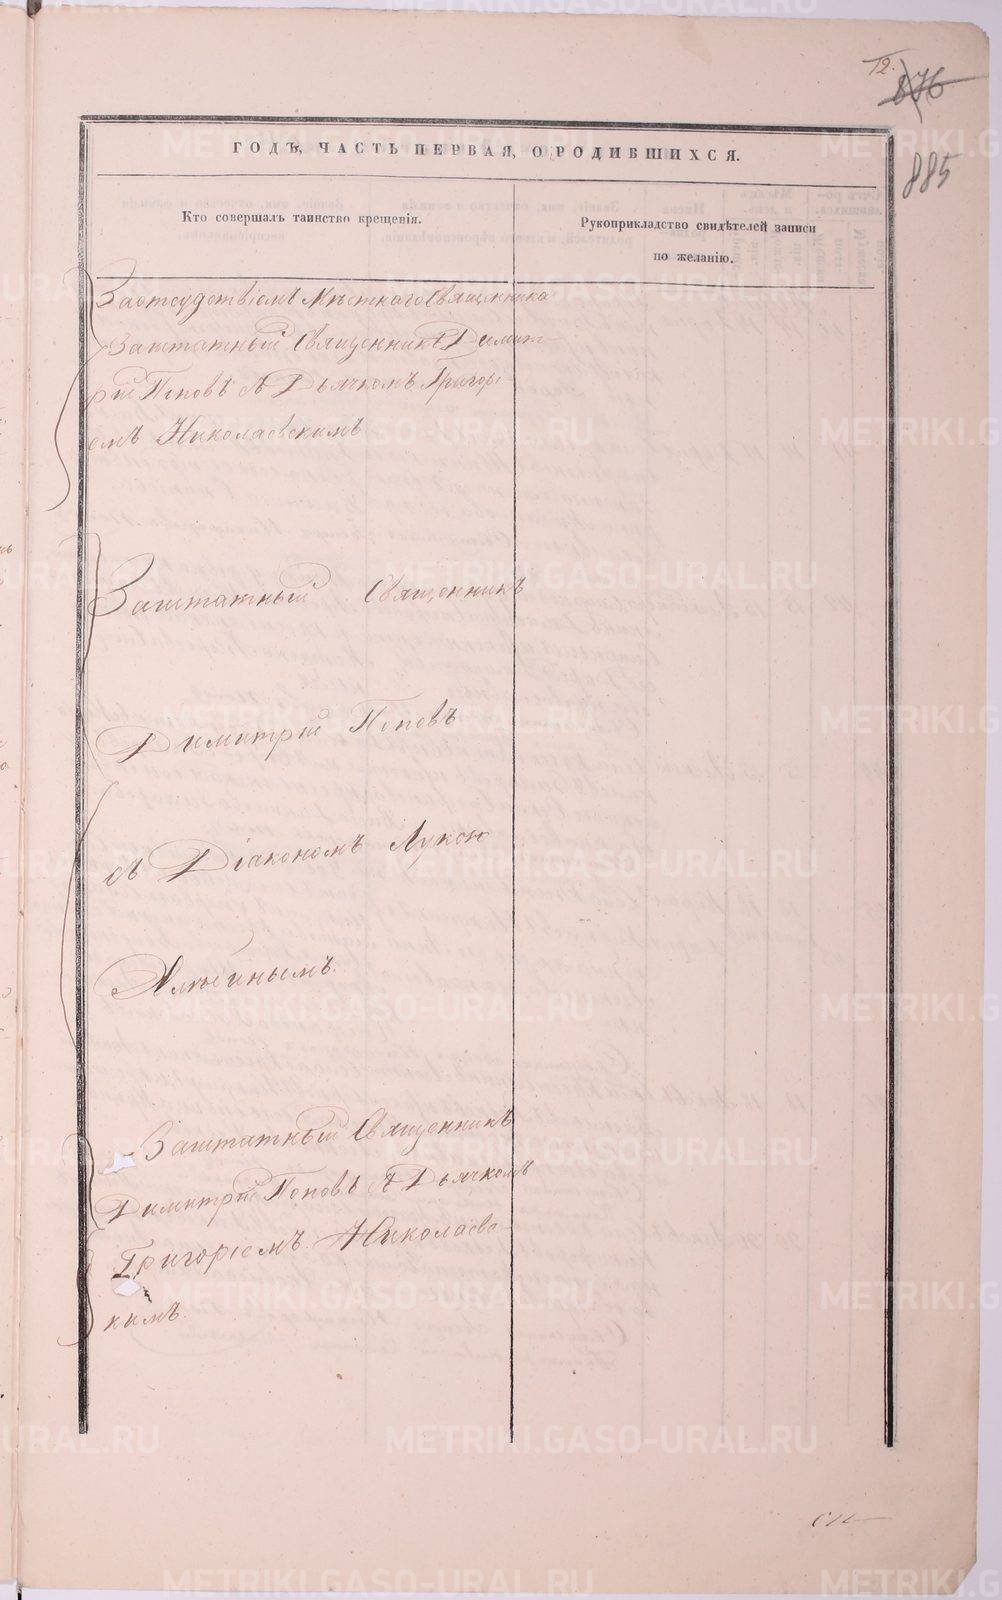 12.
876
885
ГОДЪ, ЧАСТЬ ПЕРВАЯ, О РОДИВШИХСЯ.
Кто совершалъ таинство крещенія.
Рукоприкладство свидѣтелей записи
по желанію.
За отсудствіемъ Мѣстнаго Священника
Заштатный Священникъ Димит-
рій Поповъ съ Дьячкомъ Григорі-
емъ Николаевскимъ
Заштатный Священникъ
Димитрій Поповъ
съ Діакономъ Лукою
Заштатный Священникъ
Димитрій Поповъ съ Дьячкомъ
Григоріемъ Николаевс-
кимъ.
METRIKI.GASO-URAL.RU